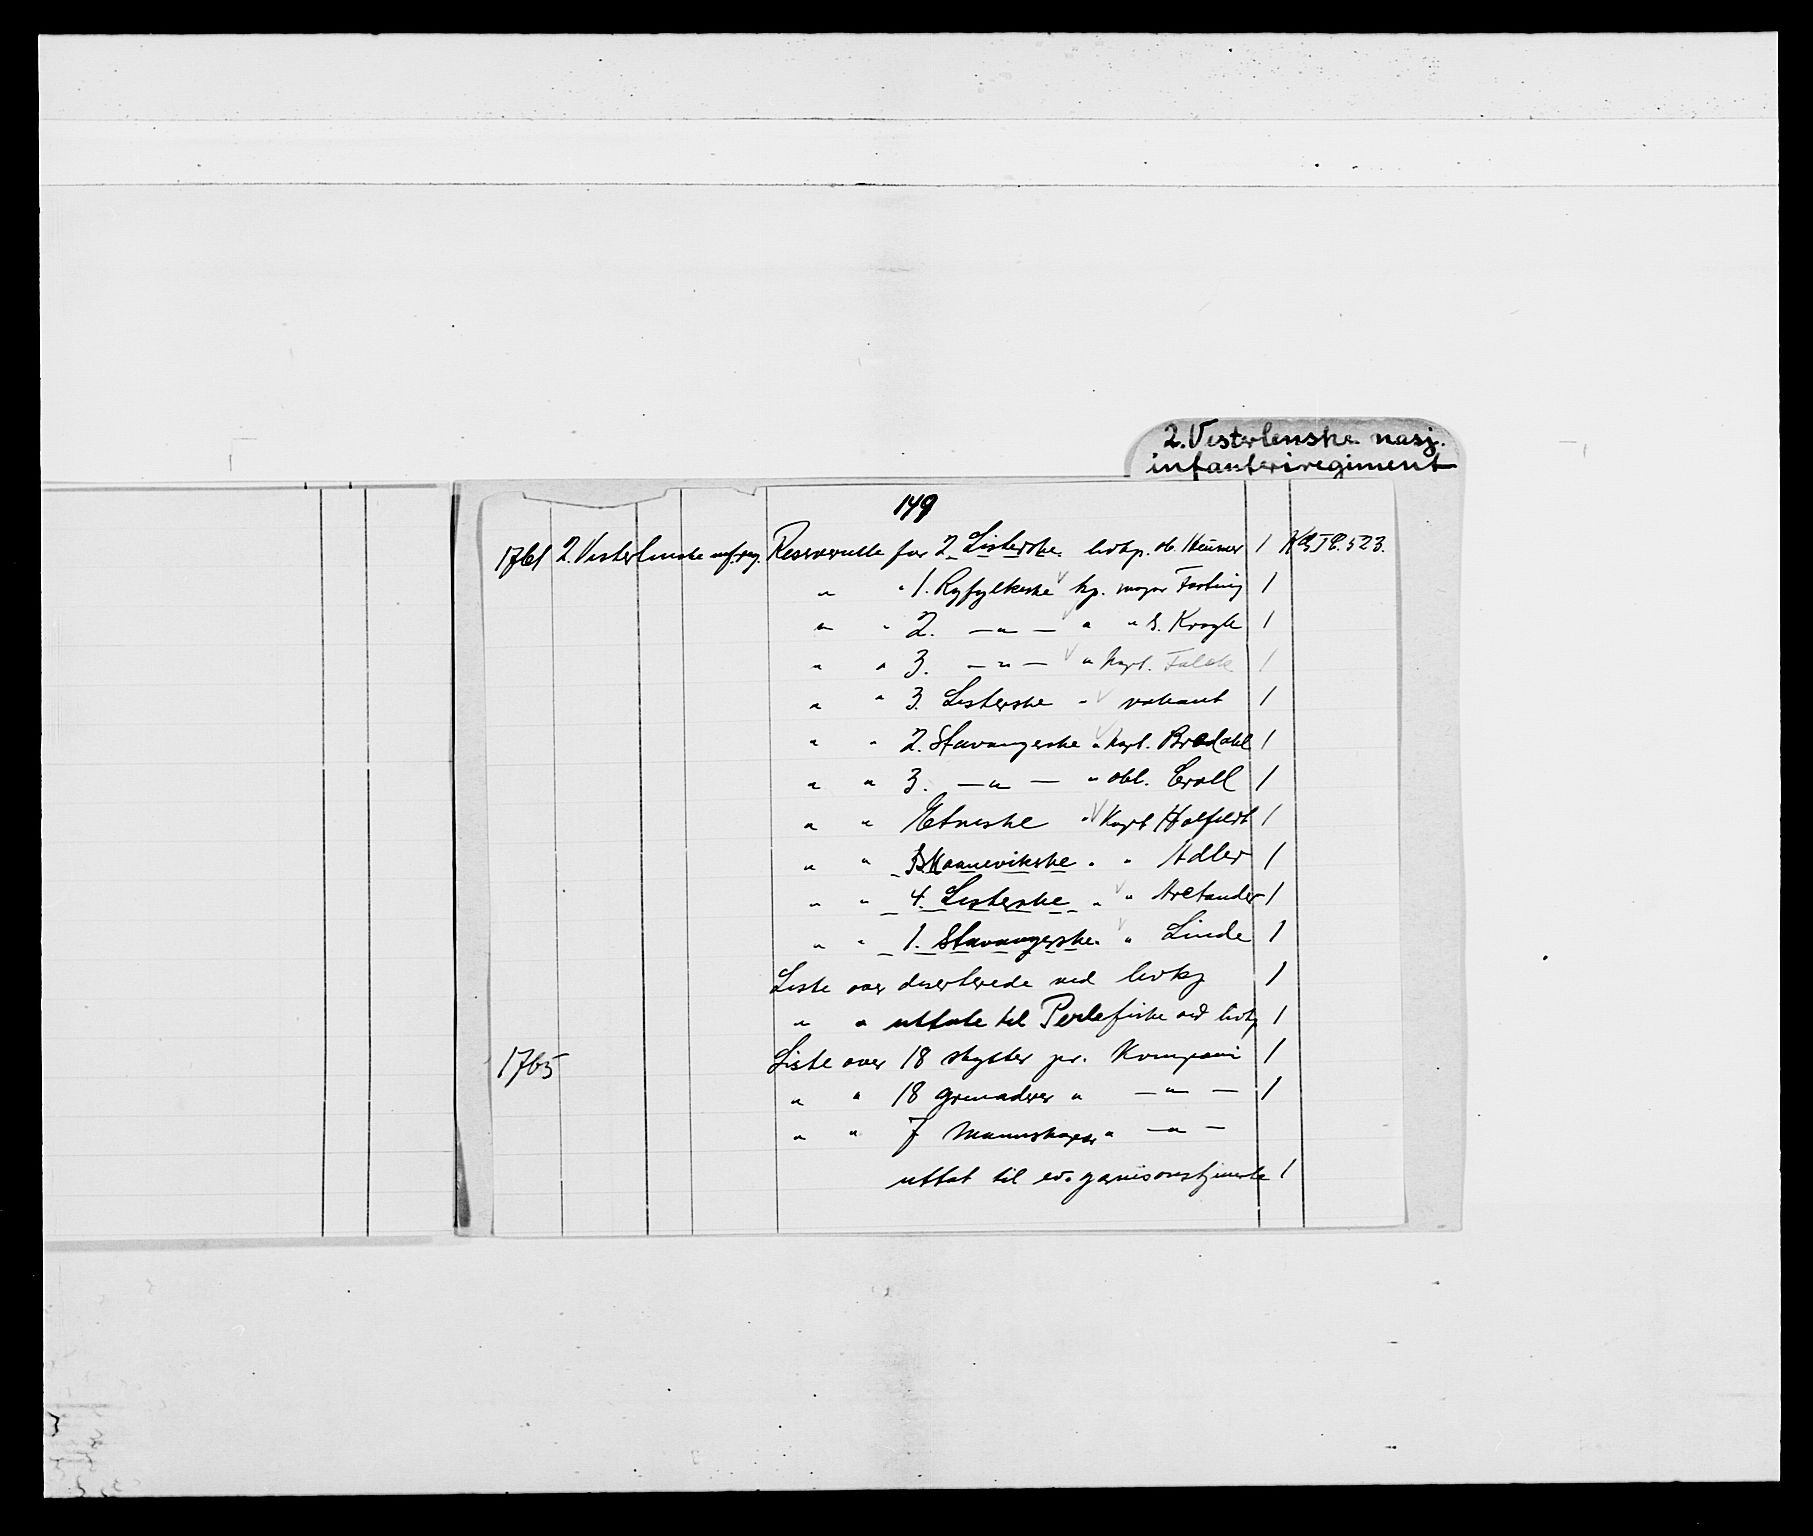 2. Vesterlenske nasj.
infanteriregiment
149
1761 2. Vesterlenske inf.reg. Reserverulle for 2. Listerske livkp. ob. Heuner 1 523.
" " 1. Ryfylkeske kp. major Fasting 1
" " 2. — " — " " S. Kragh 1
" " 3. — " — " Kapt. Falck 1
" " 3. Listerske " vakant 1
" " 2. Stavangerske " kapt. Bredahl 1
" " 3. — " — " obl. Croll 1
" " Etneske " Kapt Halfeldt 1
" " Skaanevikske " " Adler 1
" " 4. Listerske " " Aretander 1
" " 1. Stavangerske " Linde 1
Liste over deserterede ved livkp 1
" " uttatte til Perlefiske ved livkp 1
1765 Liste over 18 skytter pr. Kompani 1
" " 18 grenaderer " — " — 1
" " 7 Mannskaper " — " —
uttat til garnisonstjeneste 1